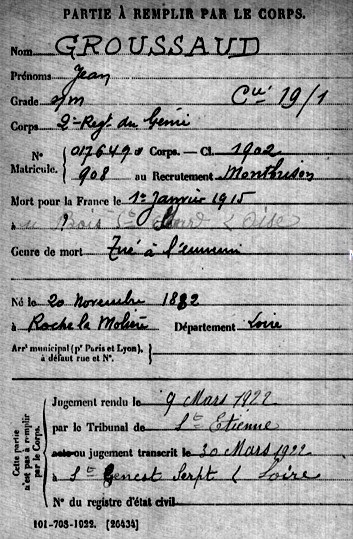 PARTIE À REMPLIR PAR LE CORPS.
Nom GROUSSAUD
Prénoms Jean
Grade s/m Cie 19/1
Corps 2e Regt du Génie
N° Matricule. 017649 Corps. — Cl. 1902
908 au Recrutement Montbrison
Mort pour la France le 1er Janvier 1915
à Bois
Genre de mort Tué à l'ennemi
Né le 20 Novembre 1882
à Roche la Molière Département Loire
Arrt municipal (pr Paris et Lyon), à défaut rue et N°.
Cette partie n'est pas à remplir par le Corps.
Jugement rendu le 9 Mars 1922
par le Tribunal de St Etienne
acte ou jugement transcrit le 30 Mars 1922
à St Genest Lerpt (Loire
N° du registre d'état civil
101-708-1022. [26434]